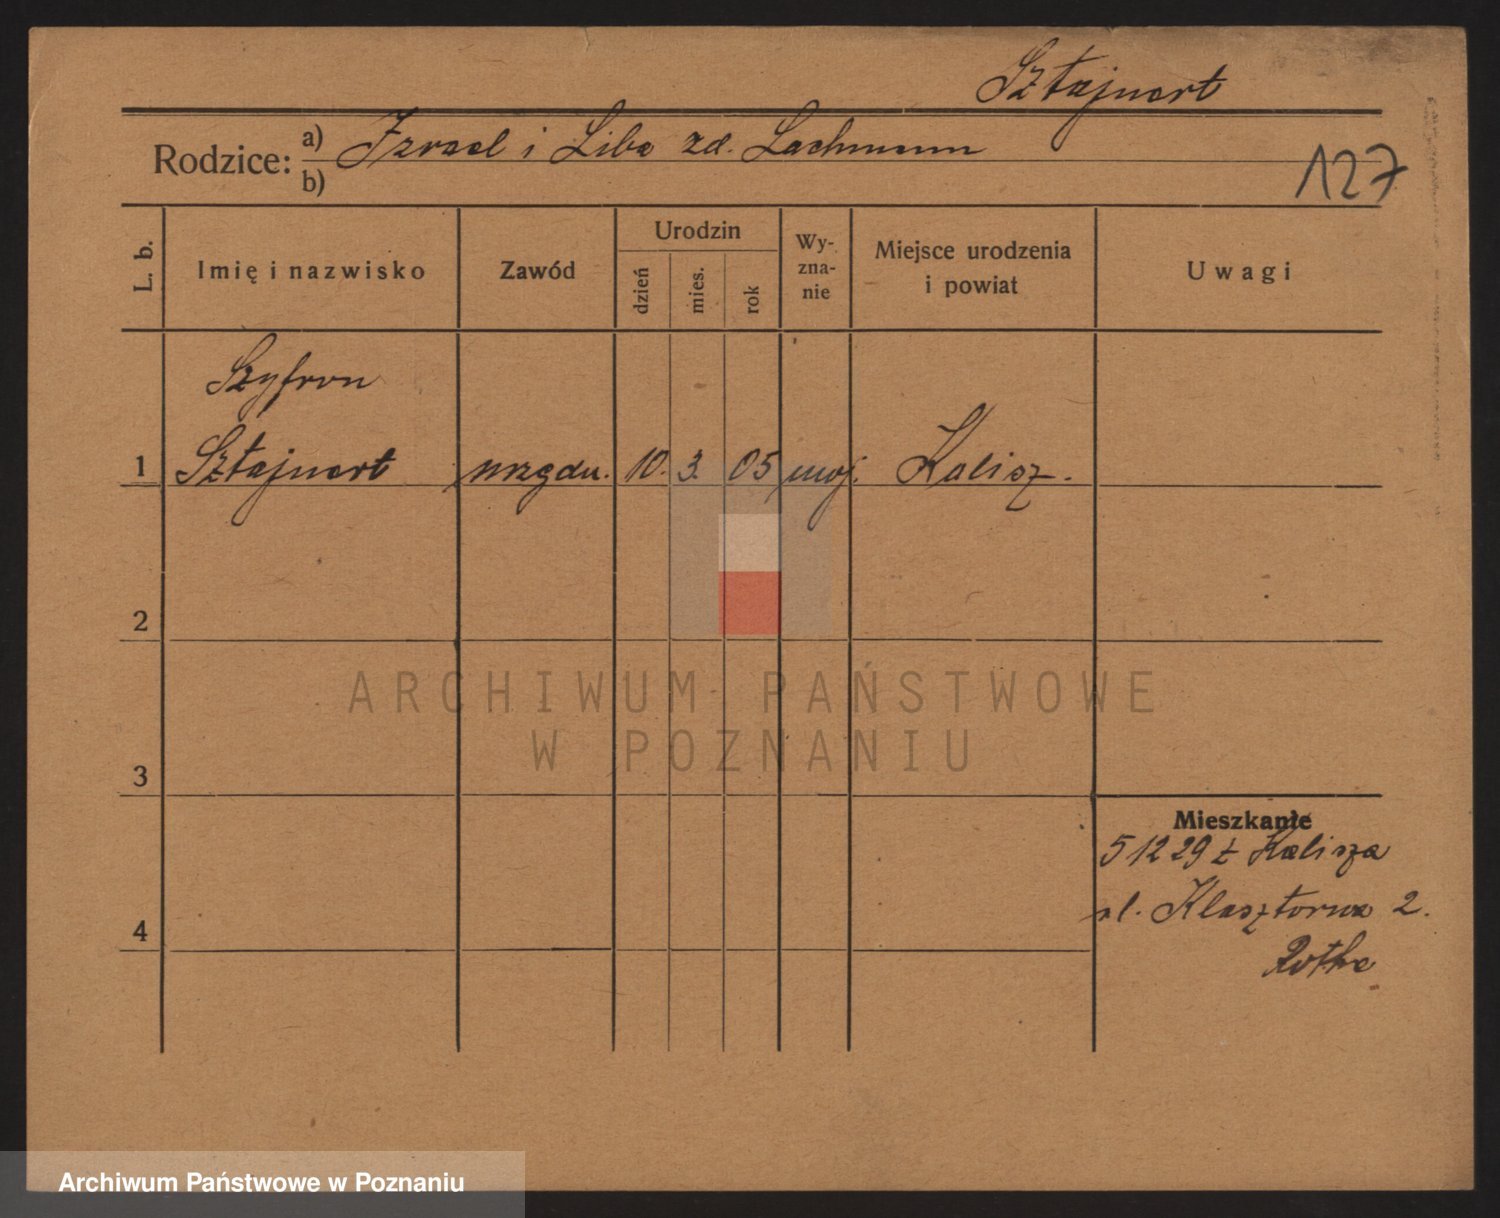 Sztajnert
Rodzice: a) Izrael i Liba zd. Lachmann
b)
127
L. b.
Imię i nazwisko
Zawód
Urodzin
dzień
mies.
rok
Wy-
zna-
nie
Miejsce urodzenia
i powiat
Uwagi
Szyfron
1 Sztajnert urzędn. 10. 3. 05 moj. Kalisz.
2
3
4
Mieszkanie
5 12 29 z Kalisza
ul. Klasztorna 2.
Rothe
ARCHIWUM PAŃSTWOWE
W POZNANIU
Archiwum Państwowe w Poznaniu